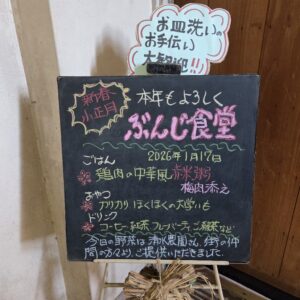 お皿洗いの
お手伝い
大歓迎!!
新春
小正月
本年もよろしく
ぶんじ食堂
ごはん
2026年1月17日
鶏肉の中華風赤米粥
梅肉添え
おやつ
カリカリほくほくの大学いも
ドリンク
コーヒー紅茶フレーバーティご雑茶など
今日の野菜は清水農園さん、街の仲
間の方々よりご提供いただきました。